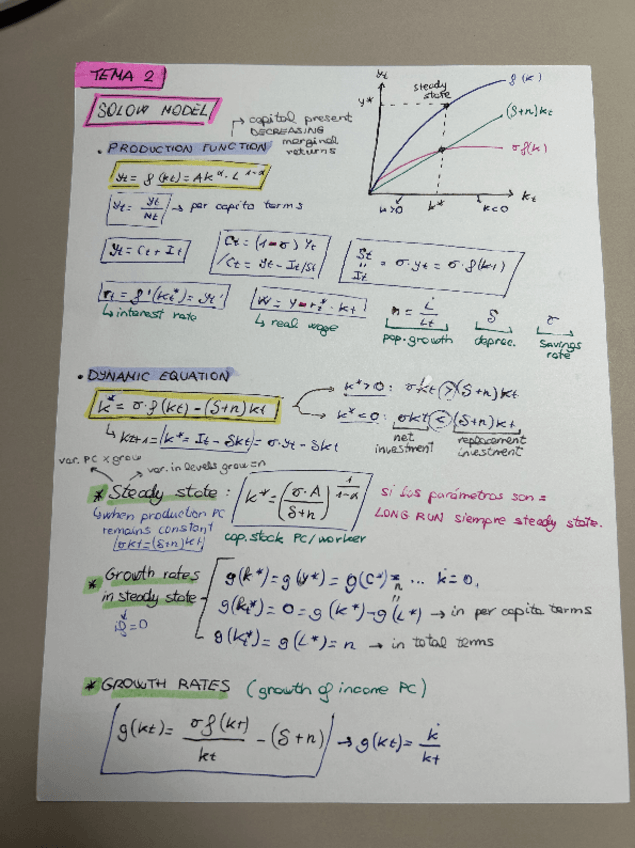 TEMA 2
SOLOW MODEL
→ capital present
DECREASING
marginal
returns
yt
y*
steady
state
f(k)
(δ+n)kt
σf(k)
kt
k>0
k*
k<0
• PRODUCTION FUNCTION
Yt = f(kt) = AK^α · L^1-α
yt = Yt/Nt → per capita terms
Yt = Ct + It
Ct = (1-σ) Yt
/Ct = Yt - It/St
St = It = σ·yt = σ·f(kt)
rt = f'(kt*) = yt'
↳ interest rate
W = Y - rt* · kt
↳ real wage
n = L̇/Lt
pop. growth
δ
deprec.
σ
savings
rate
• DYNAMIC EQUATION
k* = σ·f(kt) - (δ+n)kt
→ k*>0: σkt > (δ+n)kt
→ k*<0: σkt < (δ+n)kt
net
investment
replacement
investment
↳ kt+1 = k* = It - δkt = σ·yt - δkt
var. PC × grow
var. in levels grow = n
* Steady state: k* = (σ·A/δ+n)^1/1-α
↳ when production PC
remains constant
σkt = (δ+n)kt
cap. stock PC/worker
si los parámetros son =
LONG RUN siempre steady state.
* Growth rates
in steady state
g(k*) = g(y*) = g(c*) = ... k̇ = 0,
g(kt*) = 0 = g(k*) - g(L*) → in per capita terms
n
g(kt*) = g(L*) = n → in total terms
* GROWTH RATES (growth of income PC)
g(kt) = σf(kt)/kt - (δ+n) → g(kt) = k̇/kt